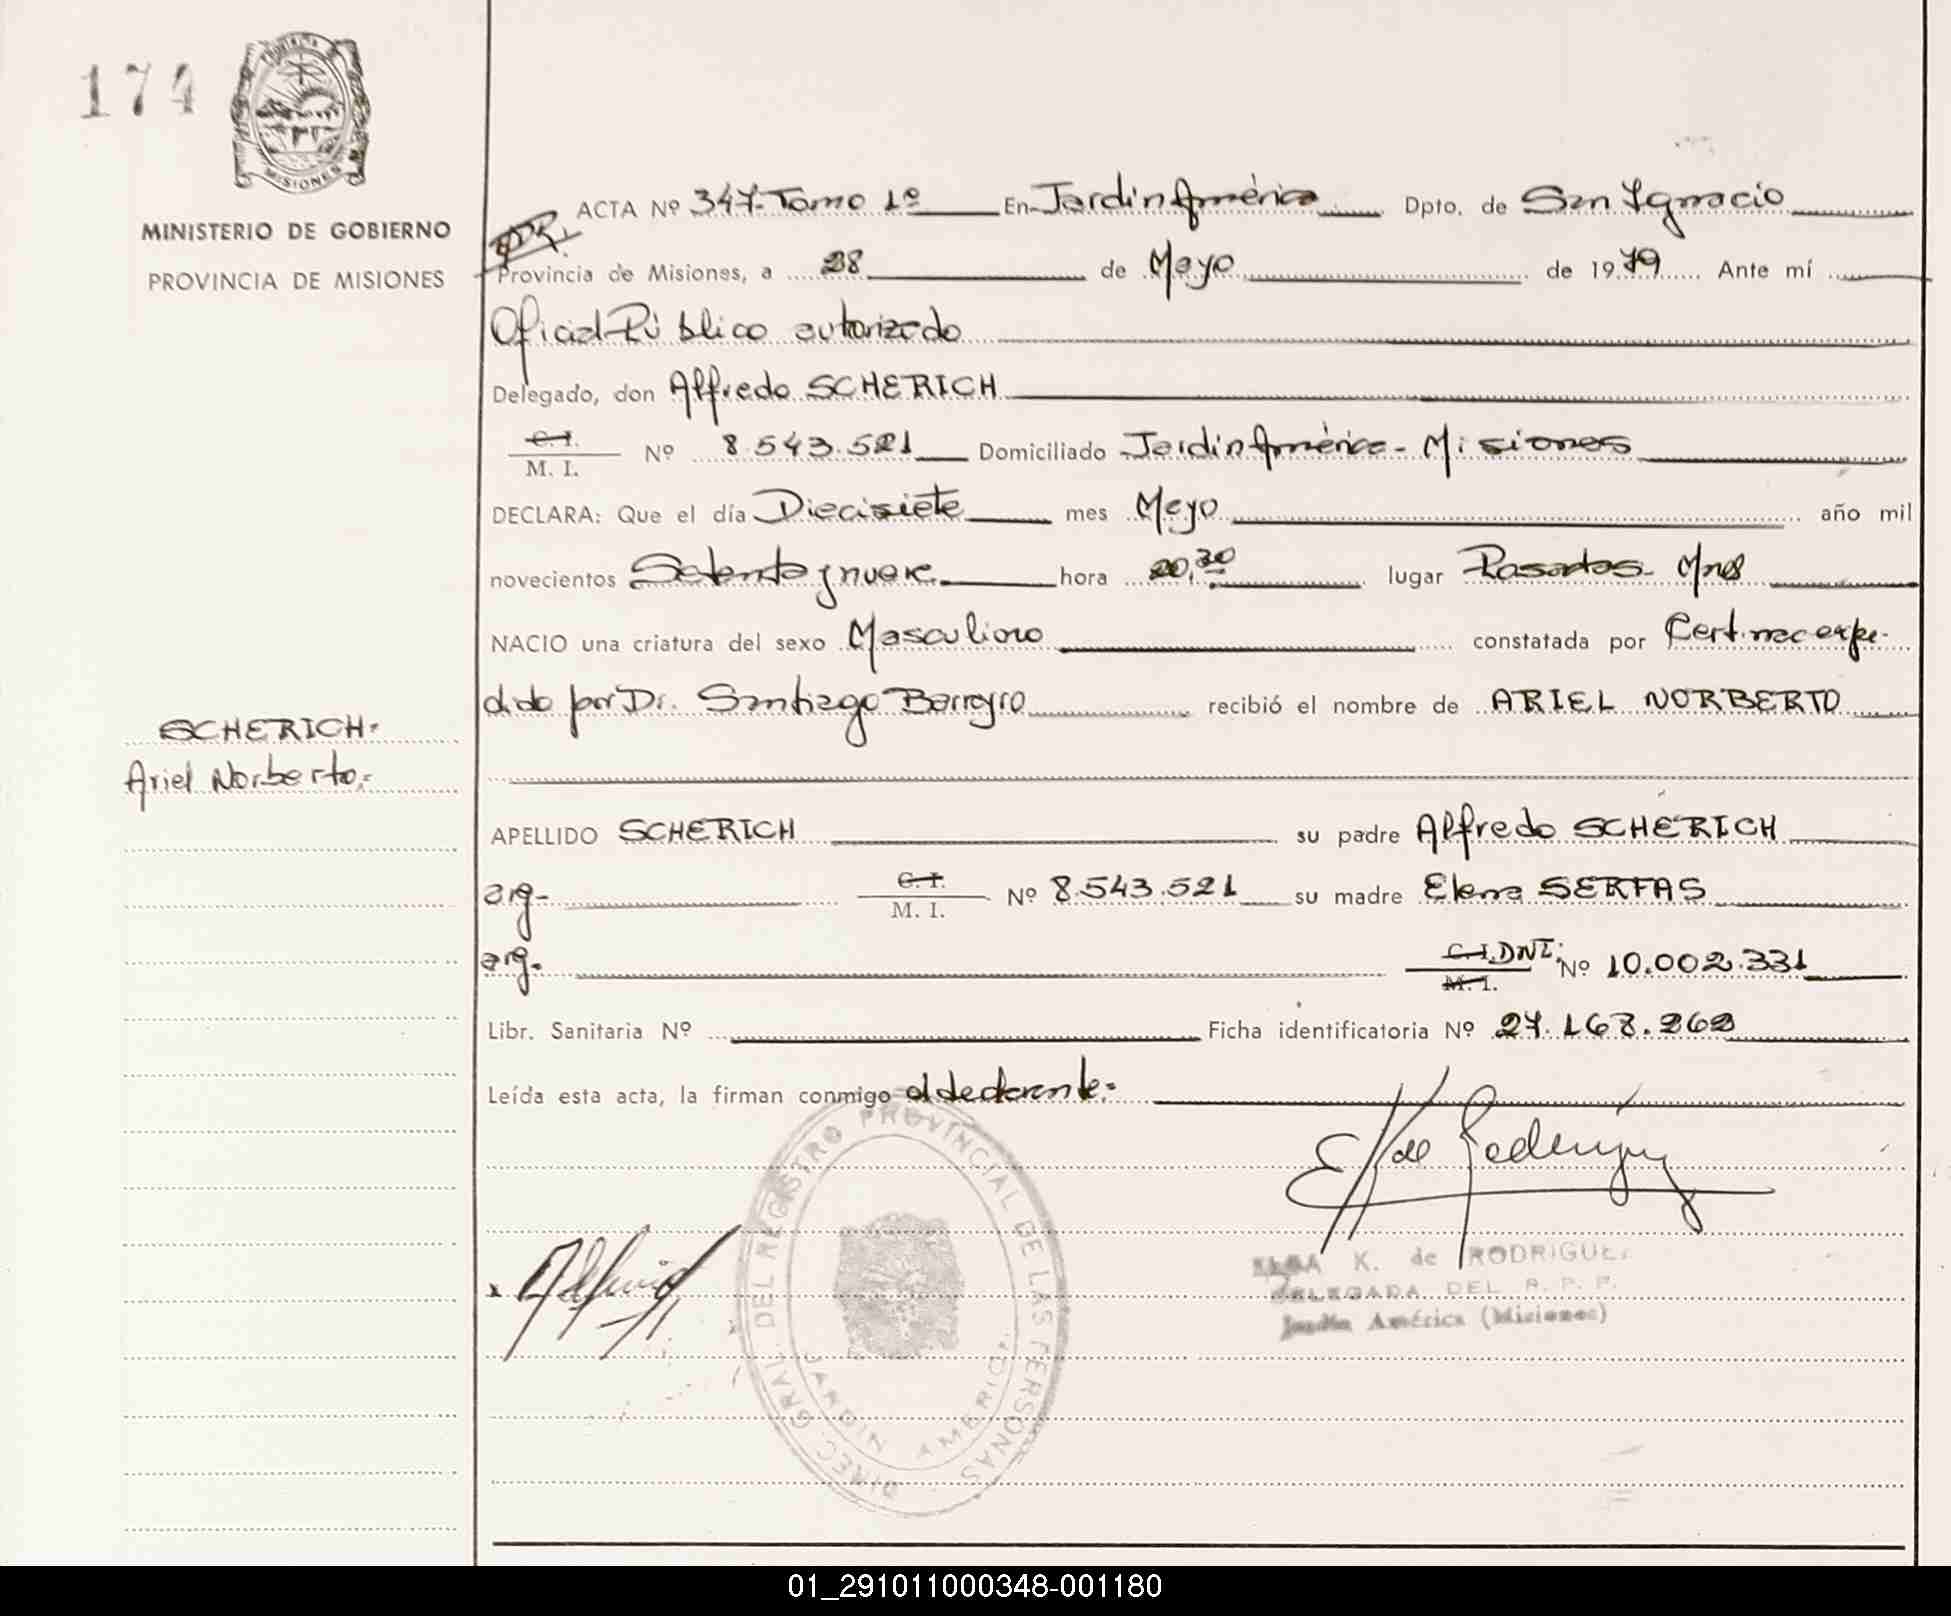 174
PROVINCIA
MISIONES
MINISTERIO DE GOBIERNO
PROVINCIA DE MISIONES
ACTA Nº 347-Tomo 1º En Jardin América Dpto. de San Ignacio
Provincia de Misiones, a 28 de Mayo de 1979 Ante mí
Oficial Público autorizado
Delegado, don Alfredo SCHERICH
C. I.
M. I. Nº 8.543.521 Domiciliado Jardin América - Misiones
DECLARA: Que el día Diecisiete mes Mayo año mil
novecientos Setenta y nueve hora 20,30 lugar Posadas - Mnes
NACIO una criatura del sexo Masculino constatada por Cert. nac expe-
dido por Dr. Santiago Barreyro recibió el nombre de ARIEL NORBERTO
SCHERICH.
Ariel Norberto.
APELLIDO SCHERICH su padre Alfredo SCHERICH
arg- C. I.
M. I. Nº 8.543.521 su madre Elena SERFAS
arg. C. I. DNI.
M. I. Nº 10.002.331
Libr. Sanitaria Nº Ficha identificatoria Nº 27.168.262
Leída esta acta, la firman conmigo el declarante.
DIREC. GRAL. DEL REGISTRO PROVINCIAL DE LAS PERSONAS
JARDIN AMERICA
K. de RODRIGUEZ
DELEGADA DEL R. P. P.
Jardín América (Misiones)
01_291011000348-001180